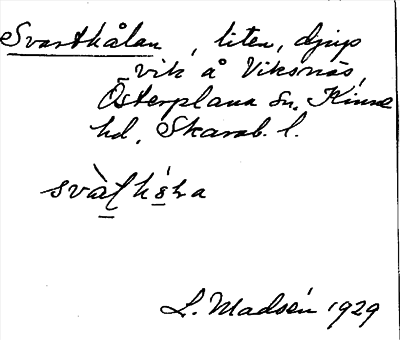 Svartkålan, liten, djup
vik å Viksnäs,
Österplana sn, Kinne
hd, Skarab. l.
L. Madsén 1929